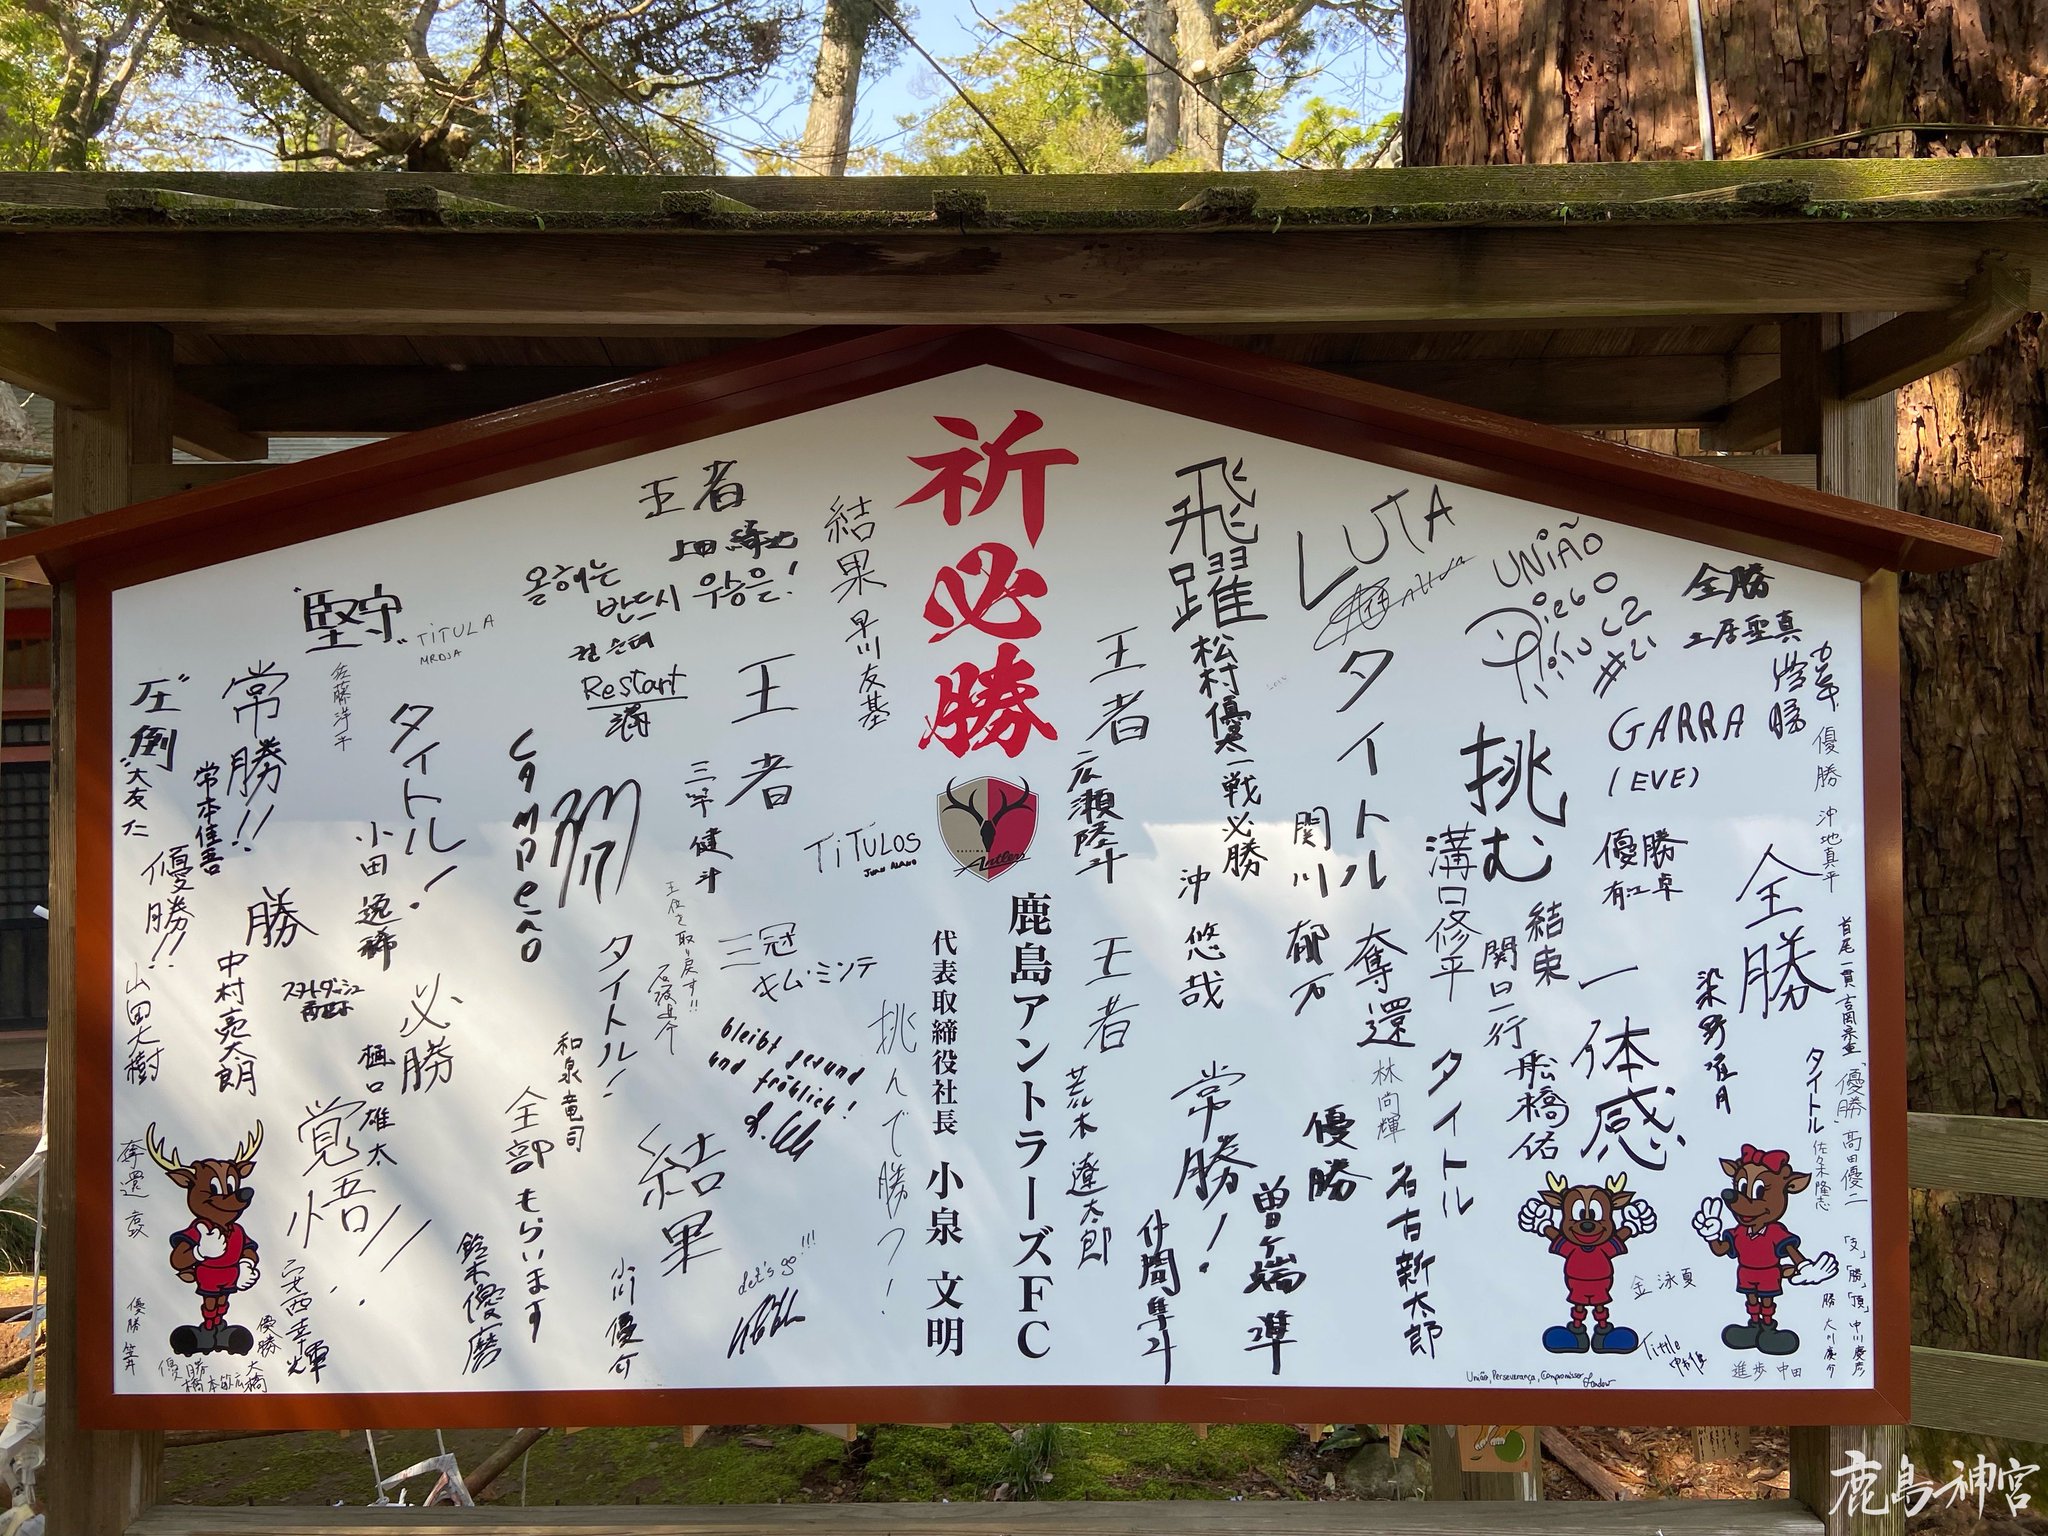 祈必勝
鹿島アントラーズFC
代表取締役社長 小泉 文明
王者
上田 綺世
結果
早川友基
올해는
반드시 우승을!
권순태
Restart
満
"堅守"
佐藤洋平
TiTULA
MRDJA
"圧倒"
大友仁
常勝!!
常本佳吾
優勝!!
山田大樹
勝
中村亮太朗
タイトル!
小田逸稀
スタートダッシュ
必勝
樋口雄太
覚悟!!
安西幸輝
奪還
優勝 笠井
優勝
橋本
優勝
大橋
campeão
和泉竜司
全部もらいます
鈴木優磨
タイトル!
小川優介
王者
三竿健斗
王位を取り戻す!!
TiTULOS
三冠
キム・ミンテ
bleibt gesund
und fröhlich!
結果
Let's go!!!
挑んで勝つ!
王者
広瀬陸斗
王者
荒木遼太郎
飛躍
松村優太
一戦必勝
沖悠哉
常勝!
仲間隼斗
優勝
曽ヶ端準
LUTA
タイトル
関川郁万
奪還
林尚輝
タイトル
名古新太郎
UNiÃO
Diego
#21
挑む
溝口修平
結束
関口一行
一体感
舩橋佑
GARRA
(EVE)
優勝
有江卓
全勝
土居聖真
優勝 沖地真平
全勝
染野唯月
首尾一貫
「優勝」高田優二
タイトル 佐々木隆志
「支」「勝」「頂」中川慶彦
勝 大川慶介
金泳夏
Tittle
進歩 中田
União, Perseverança, Compromisso
鹿島神宮